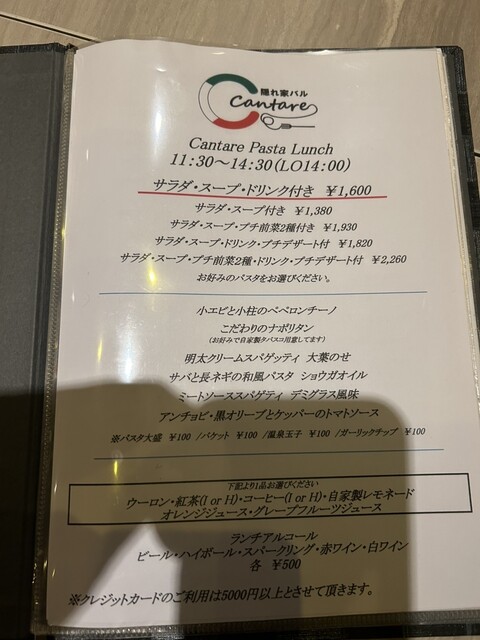 隠れ家バル
Cantare
Cantare Pasta Lunch
11:30～14:30(LO14:00)
サラダ・スープ・ドリンク付き ￥1,600
サラダ・スープ付き ￥1,380
サラダ・スープ・プチ前菜2種付き ￥1,930
サラダ・スープ・ドリンク・プチデザート付 ￥1,820
サラダ・スープ・プチ前菜2種・ドリンク・プチデザート付 ￥2,260
お好みのパスタをお選びください。
小エビと小柱のペペロンチーノ
こだわりのナポリタン
(お好みで自家製タバスコ用意してます)
明太クリームスパゲッティ 大葉のせ
サバと長ネギの和風パスタ ショウガオイル
ミートソーススパゲティ デミグラス風味
アンチョビ・黒オリーブとケッパーのトマトソース
※パスタ大盛 ￥100 /バケット ￥100 /温泉玉子 ￥100 /ガーリックチップ ￥100
下記より1品お選びください
ウーロン・紅茶(I or H)・コーヒー(I or H)・自家製レモネード
オレンジジュース・グレープフルーツジュース
ランチアルコール
ビール・ハイボール・スパークリング・赤ワイン・白ワイン
各 ￥500
※クレジットカードのご利用は5000円以上とさせて頂きます。